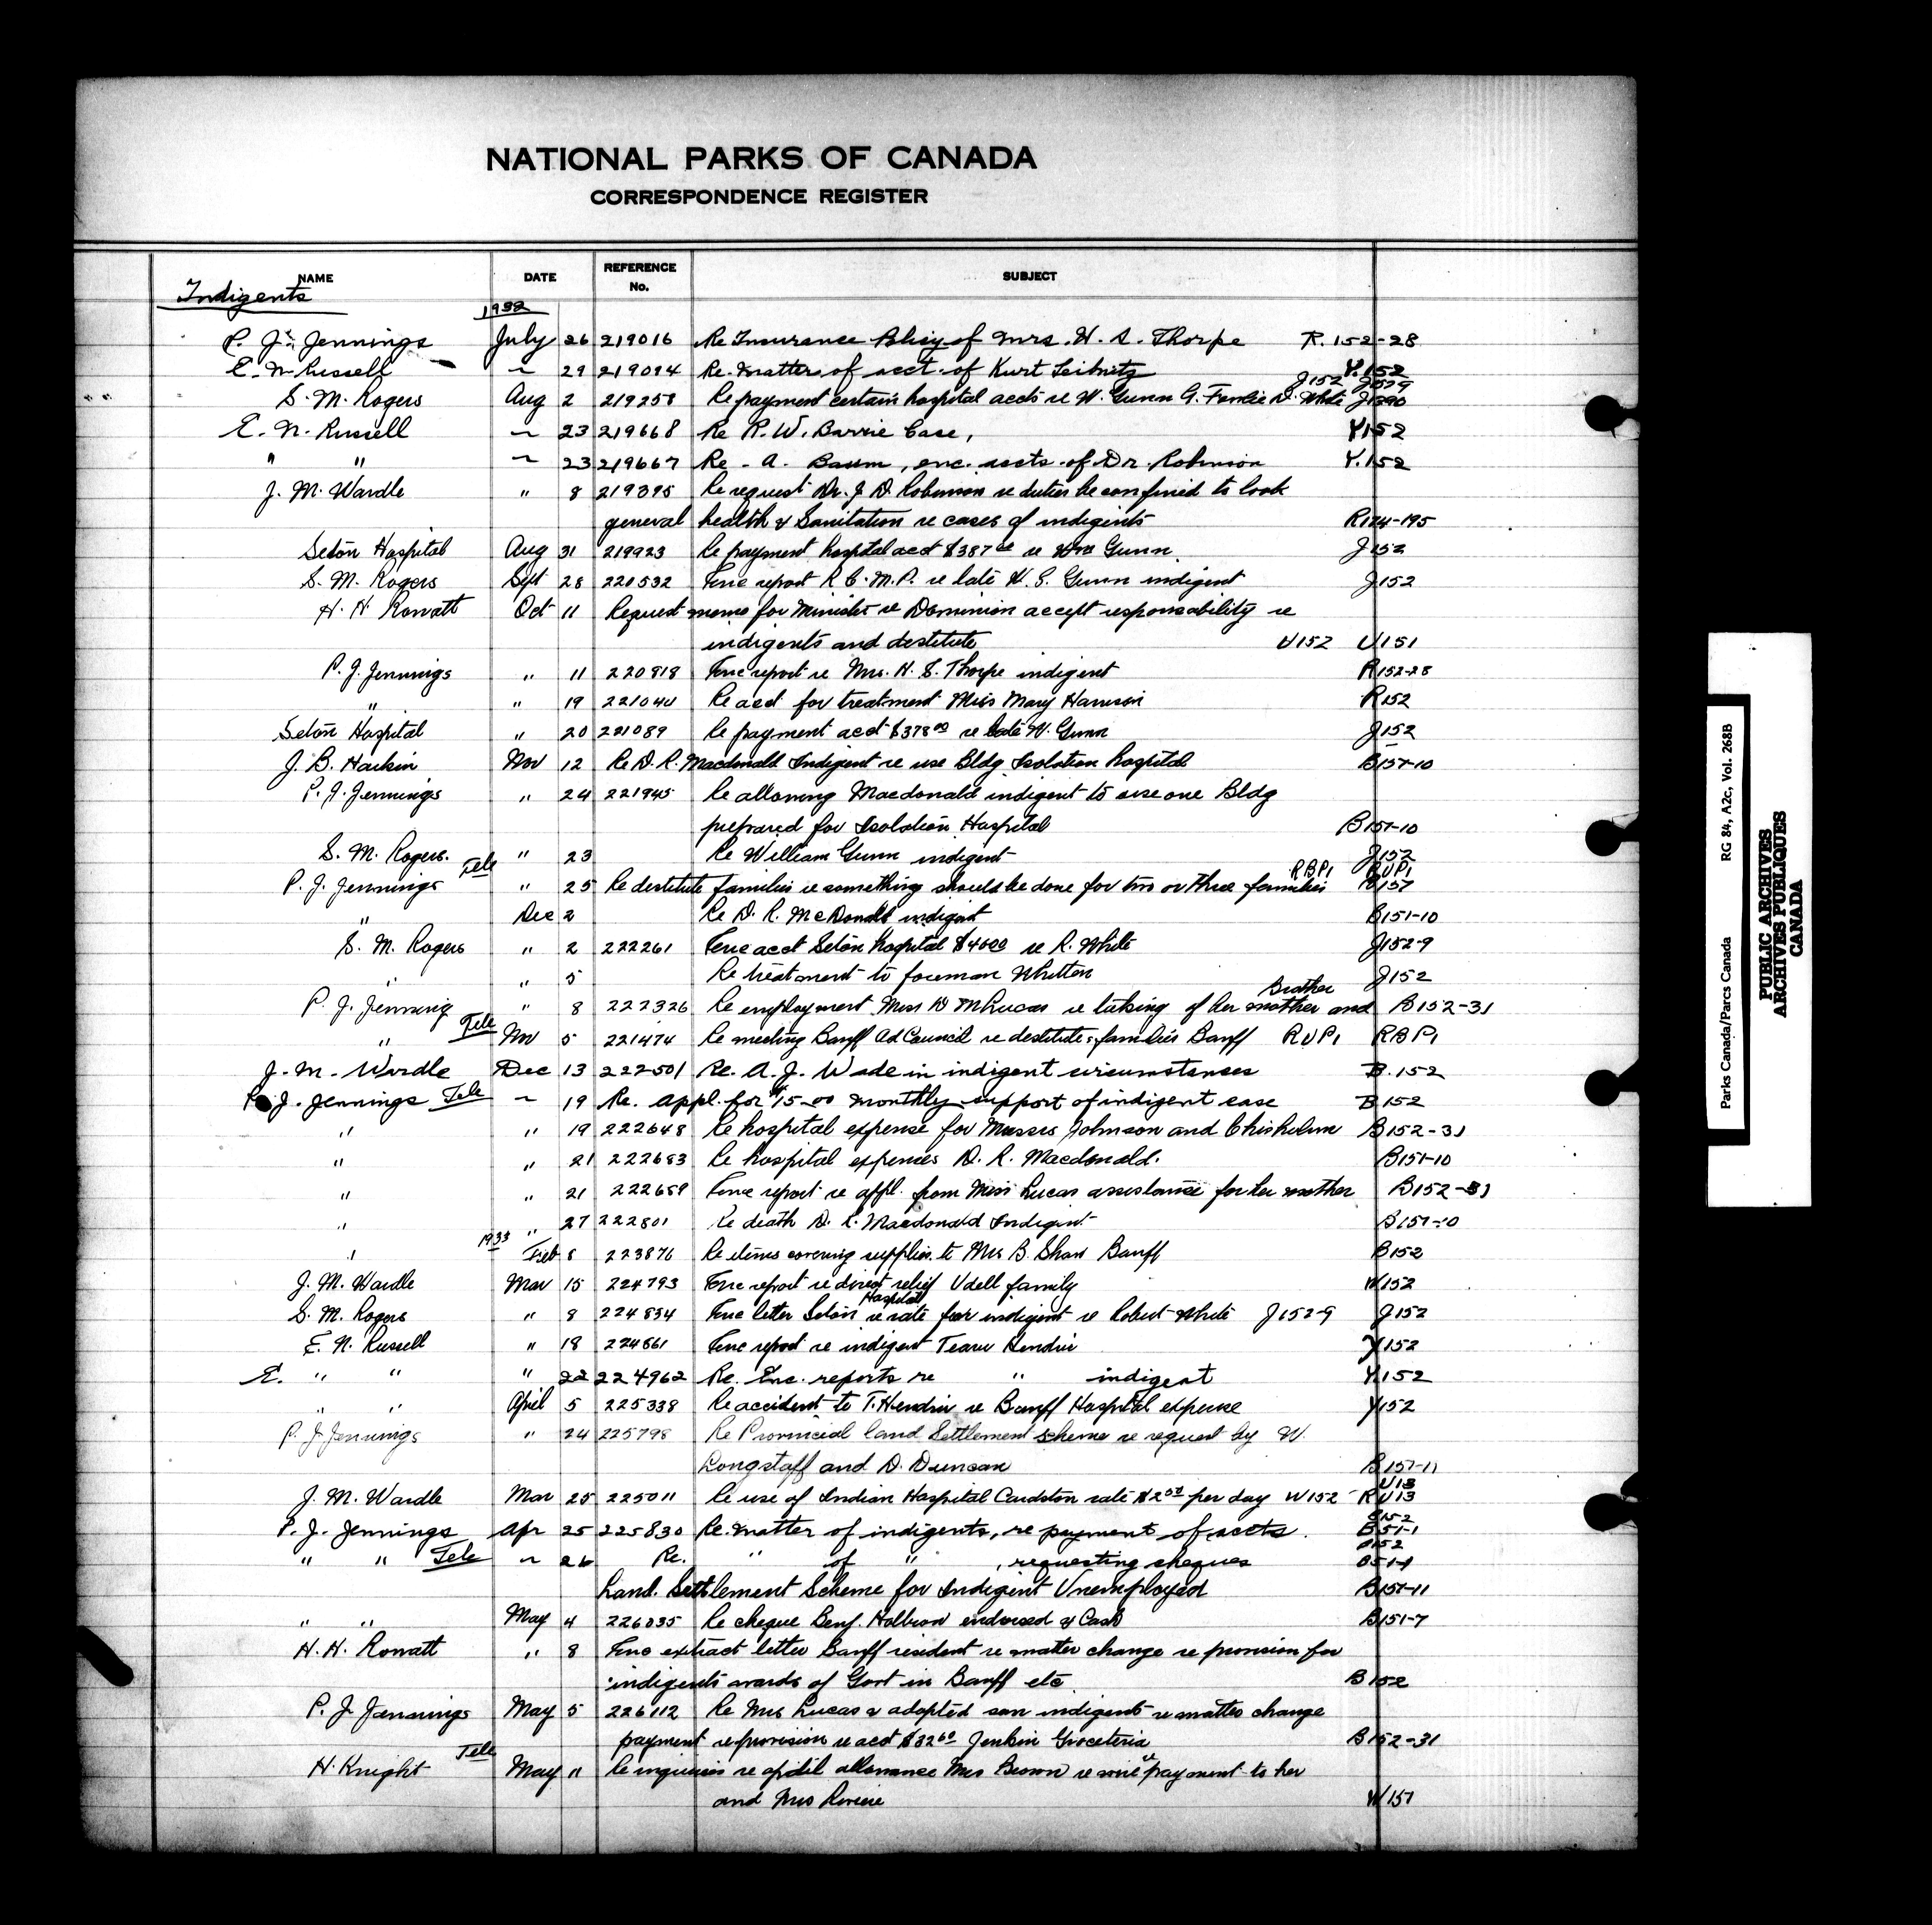 NATIONAL PARKS OF CANADA
CORRESPONDENCE REGISTER
NAME DATE REFERENCE No. SUBJECT
Indigents
1932
P. J. Jennings July 26 219016 Re Insurance Policy of Mrs. H. S. Thorpe R. 152-28
E. N. Russell 〃 29 219094 Re. matter of acct. of Kurt Leibnitz Y.152
S. M. Rogers Aug 2 219258 Re payment certain hospital accts re W. Gunn G. Famlie D. White J152
E. N. Russell 〃 23 219668 Re R. W. Barrie Case, Y152
" " 〃 23 219667 Re - A. Baum, enc. accts. of Dr. Robinson Y.152
J. M. Wardle " 8 219395 Re request Dr. J D. Robinson re duties be confined to look
general health & Sanitation re cases of indigents R174-195
Seton Hospital Aug 31 219923 Re payment hospital acct $387 re Wm Gunn J152
S. M. Rogers Sept 28 220532 Enc report R. C. M. P. re late W. S. Gunn indigent J152
H. H Rowatt Oct 11 Request memo for Minister re Dominion accept responsability re
indigents and destitute U152 U151
P. J. Jennings " 11 220818 Enc report re Mrs. H. S. Thorpe indigent R152-28
" " 19 221040 Re acct for treatment Miss Mary Harrison R152
Seton Hospital " 20 221089 Re payment acct $378 00 re late W. Gunn J152
J. B. Harkin Nov 12 Re D. R. Macdonald Indigent re use Bldg Isolation hospital B151-10
P. J. Jennings " 24 221945 Re allowing Macdonald indigent to use one Bldg
prepared for Isolation Hospital B151-10
S. M. Rogers. " 23 Re William Gunn indigent J152
P. J. Jennings Tele " 25 Re destitute families re something should be done for two or three families RBP1 RUP1 B157
" Dec 2 Re D. R. McDonald indigent B151-10
S. M. Rogers " 2 222261 Enc acct Seton hospital $40 00 re R. White J152-9
" " 5 Re treatment to foreman Whitten J152
P. J. Jennings " 8 222326 Re employment Miss D M Lucas re taking of her mother and Brother B152-31
" Tele Nov 5 221474 Re meeting Banff Ad Council re destitute families Banff RUP1 RBP1
J. M. Wardle Dec 13 222501 Re. A. J. Wade in indigent circumstances B.152
P. J. Jennings Tele 〃 19 Re. Appl. for $15-00 monthly support of indigent case B152
" " 19 222648 Re hospital expense for Messrs Johnson and Chisholm B152-31
" " 21 222683 Re hospital expenses D. R. Macdonald. B151-10
" " 21 222659 Enc report re appl. from Miss Lucas assistance for her mother B152-31
" " 27 222801 Re death D. R. Macdonald Indigent B151-10
1933
" Feb 8 223876 Re items covering supplies to Mrs B. Shaw Banff B152
J. M. Wardle Mar 15 224793 Enc report re direct relief Udell family W152
S. M. Rogers " 8 224834 Enc letter Seton Hospital re rate for indigent re Robert White J152-9 J152
E. N. Russell " 18 224861 Enc report re indigent Hendrin Y152
E. " " " 22 224962 Re. Enc. reports re " indigent Y.152
" " April 5 225338 Re accident to T. Hendrin re Banff Hospital expense Y152
P. J. Jennings " 24 225798 Re Provincial land Settlement scheme re request by W.
Longstaff and D. Duncan B151-11
J. M. Wardle Mar 25 225011 Re use of Indian Hospital Cardston rate $2 50 per day W152 U13 RU13
P. J. Jennings Apr 25 225830 Re. matter of indigents, re payment of accts. B152 B51-1
" " Tele 〃 26 Re. " of " , requesting cheques B152 B51-1
Land. Settlement Scheme for Indigent Unemployed B151-11
" " May 4 226035 Re cheque Benj. endorsed & Cash B151-7
H. H. Rowatt " 8 Enc extract letter Banff resident re matter change re provision for
indigents wards of Govt in Banff etc. B152
P. J Jennings May 5 226112 Re Mrs Lucas & adopted son indigents re matter change
payment re provision re acct $32 60 Jenkin Groceteria B152-31
H. Knight Tele May 11 Re inquiries re april allowance Mrs Brown re payment to her
and Mrs Riviere W151
PUBLIC ARCHIVES
ARCHIVES PUBLIQUES
CANADA
Parks Canada/Parcs Canada RG 84, A2c, Vol. 268B